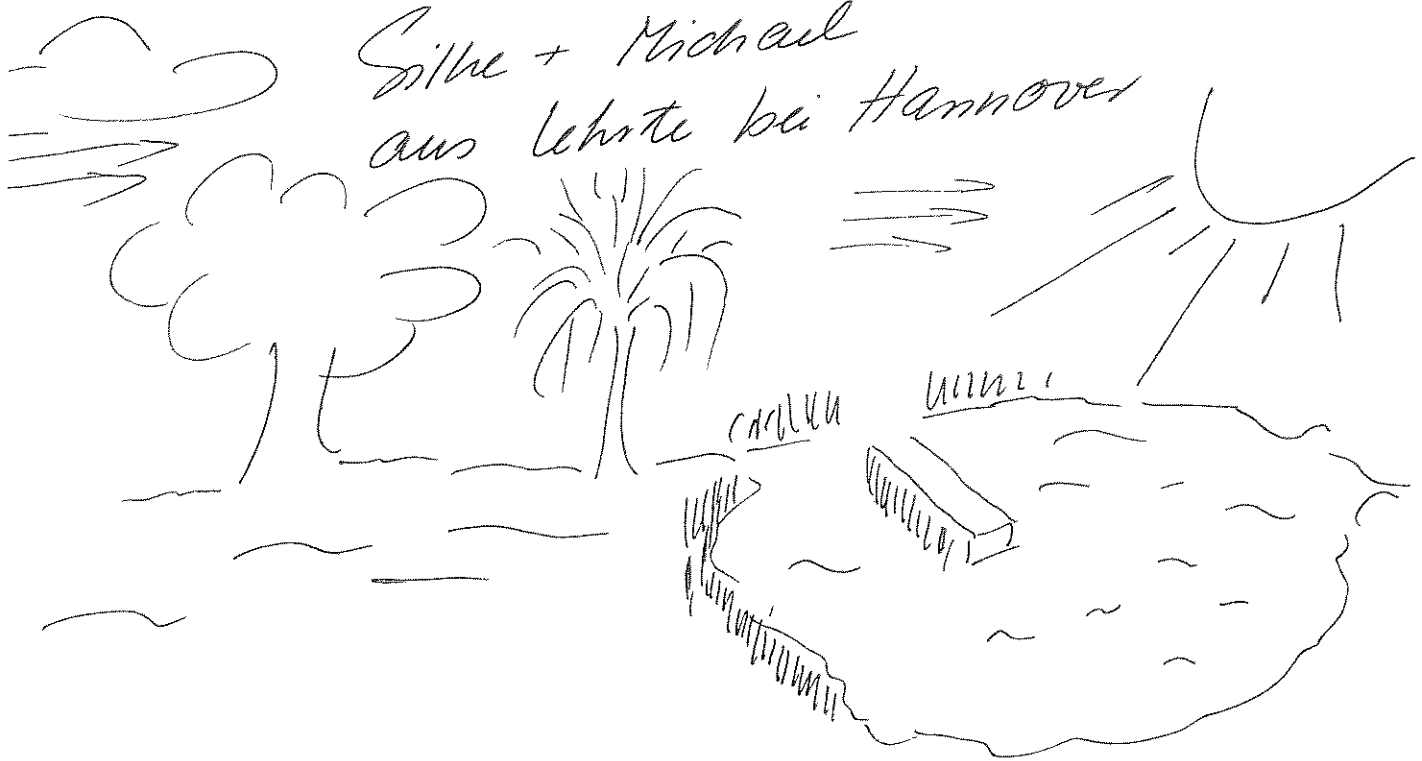 Silke + Michael
aus Lehrte bei Hannover